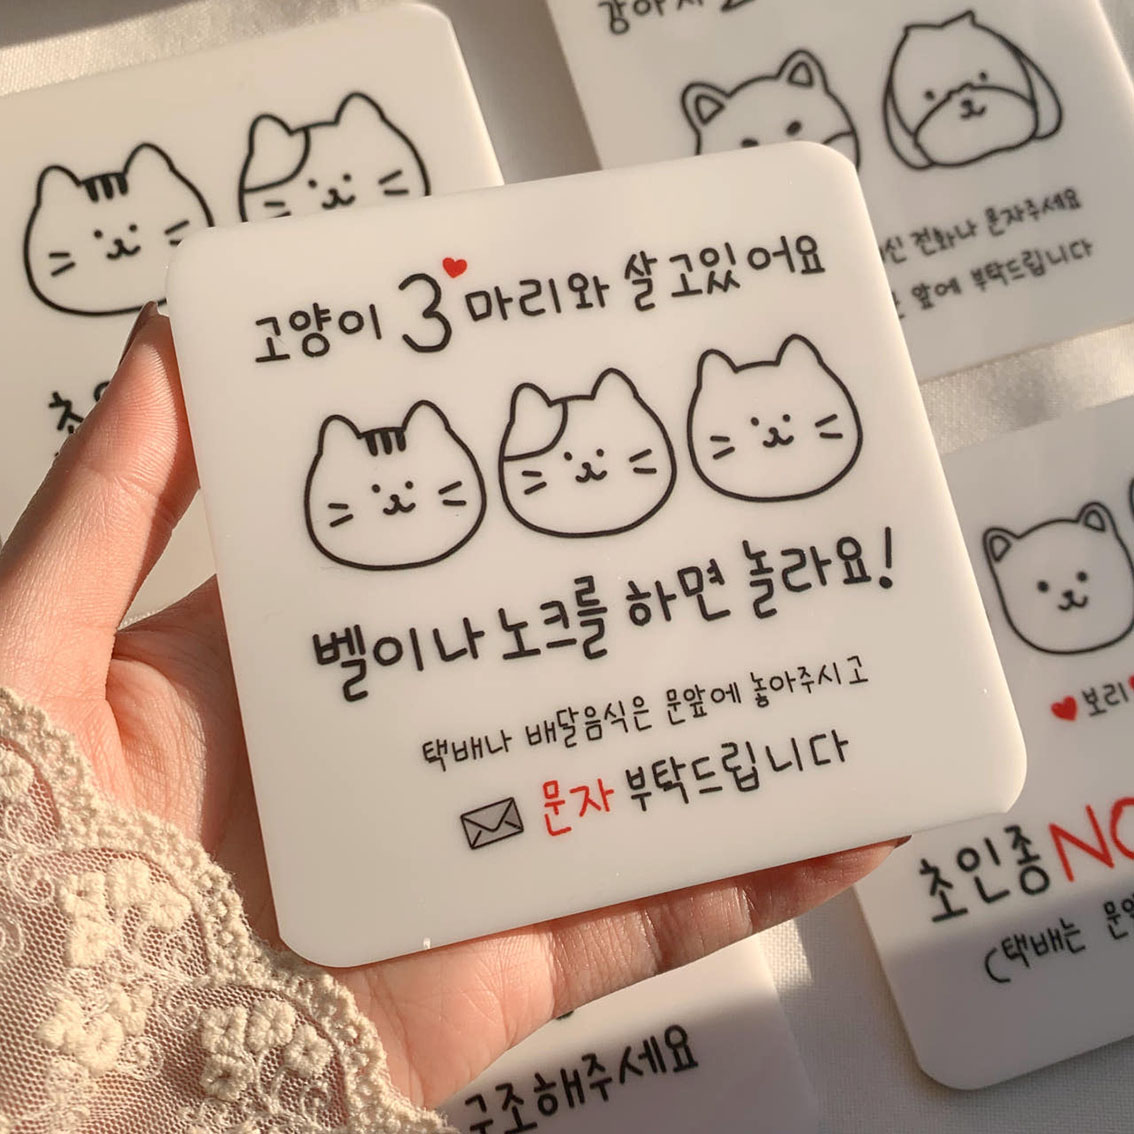 고양이 3 마리와 살고있어요
벨이나 노크를 하면 놀라요!
택배나 배달음식은 문앞에 놓아주시고
문자 부탁드립니다
전화나 문자주세요
앞에 부탁드립니다
보리
초인종
(택배는
구조해주세요